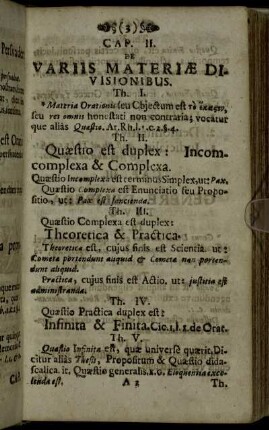 (3)
CAP. II.
DE
VARIIS MATERIÆ DI-
VISIONIBUS.
Th. I.
Materia Orationis seu Objectum est τὸ
seu res omnis honestati non contraria; vocatur
que aliàs Quæstio. Ar. Rh. l. 1. c. 2. §. 4.
Th. II.
Quæstio est duplex: Incom-
complexa & Complexa.
Quæstio Incomplexa est terminus Simplex, ut: Pax.
Quæstio Complexa est Enunciatio seu Propo-
sitio, ut: Pax est sancienda.
Th. III.
Quæstio Complexa est duplex:
Theoretica & Practica.
Theoretica est, cujus finis est Scientia. ut:
Cometa portendunt aliquid & Cometa non porten-
dunt aliquid.
Practica, cujus finis est Actio, ut: justitia est
administranda.
Th. IV.
Quæstio Practica duplex est:
Infinita & Finita. Cic. l. 1. 2. de Orat.
Th. V.
Quæstio Infinita est, quæ universè quærit. Di-
citur aliàs Thesis, Propositum & Quæstio dida-
scalica. it. Quæstio generalis. Eloquentia exco-
lenda est.
A 2 Th.